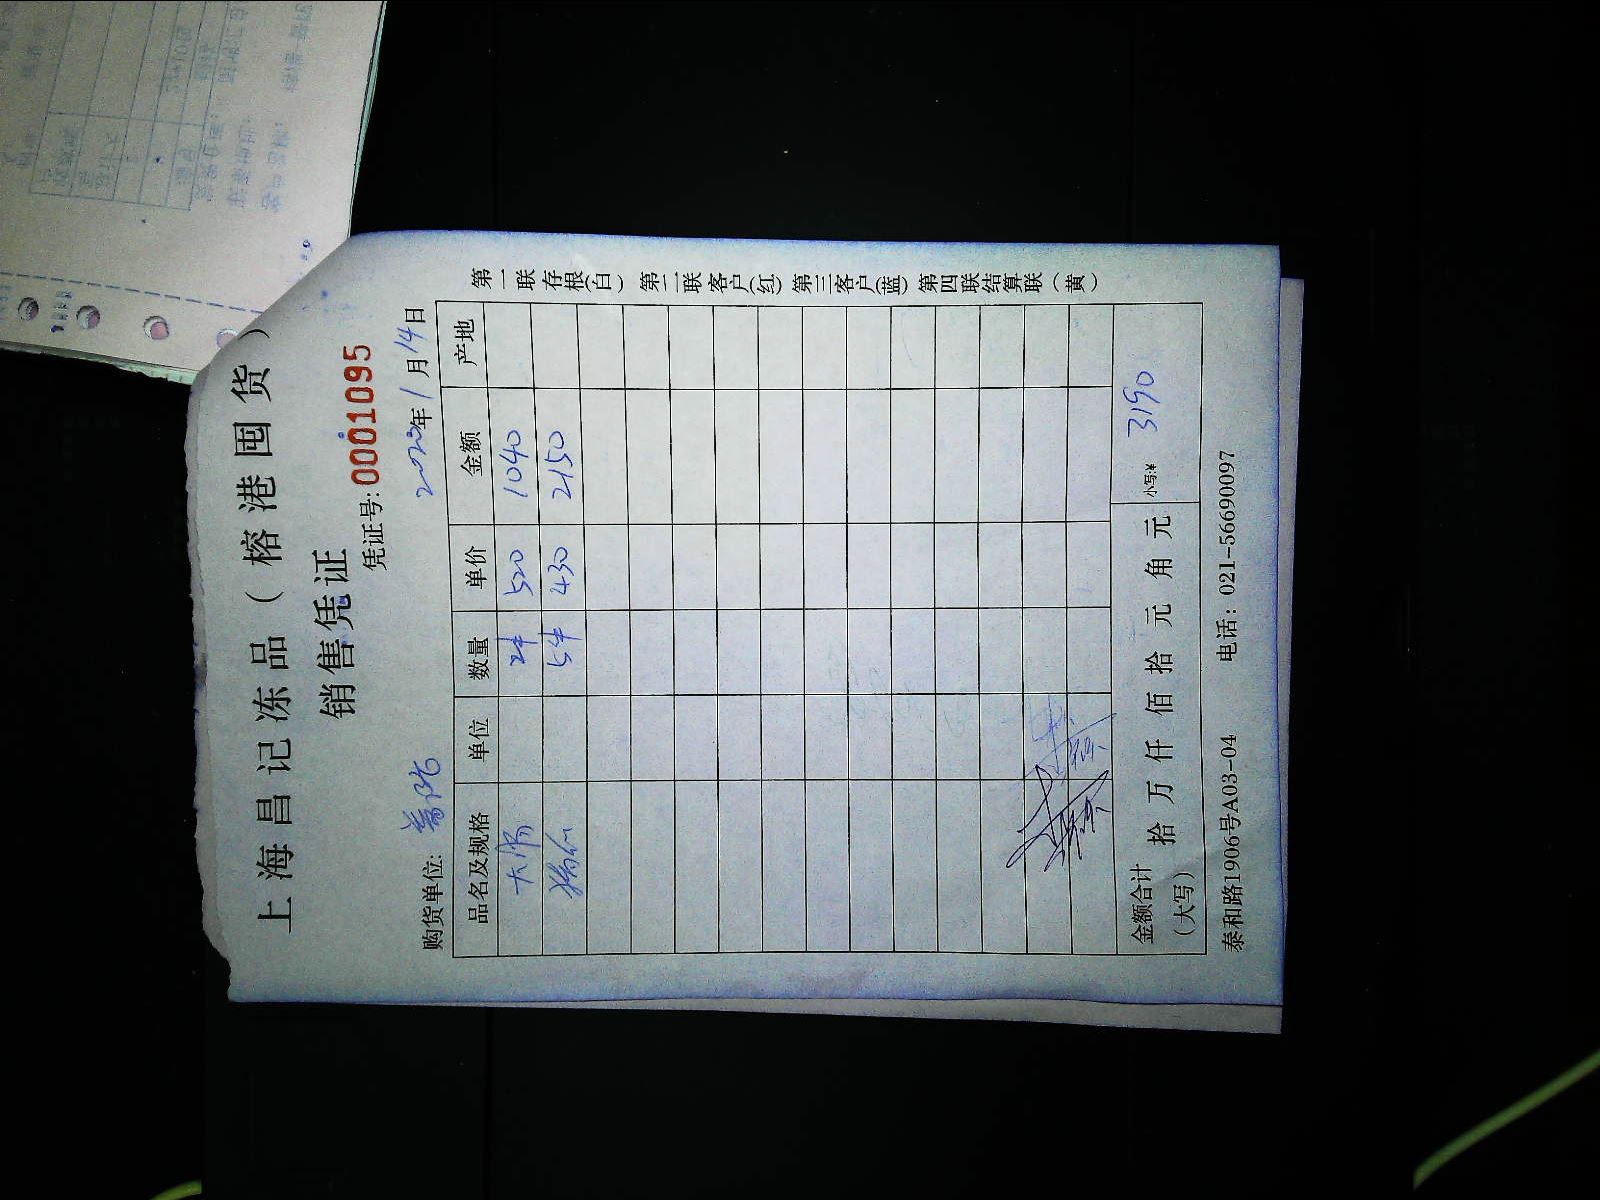 上海昌记冻品（榕港囤货）
销售凭证
凭证号: 0001095
购货单位: 2020年1月14日
品名及规格 单位 数量 单价 金额 产地
大肠 2件 520 1040
5件 430 2150
金额合计（大写） 拾 万 仟 佰 拾 元 角 元 小写:¥ 3190
泰和路1906号A03-04 电话：021-56690097
第一联存根(白) 第二联客户(红) 第三客户(蓝) 第四联结算联(黄)